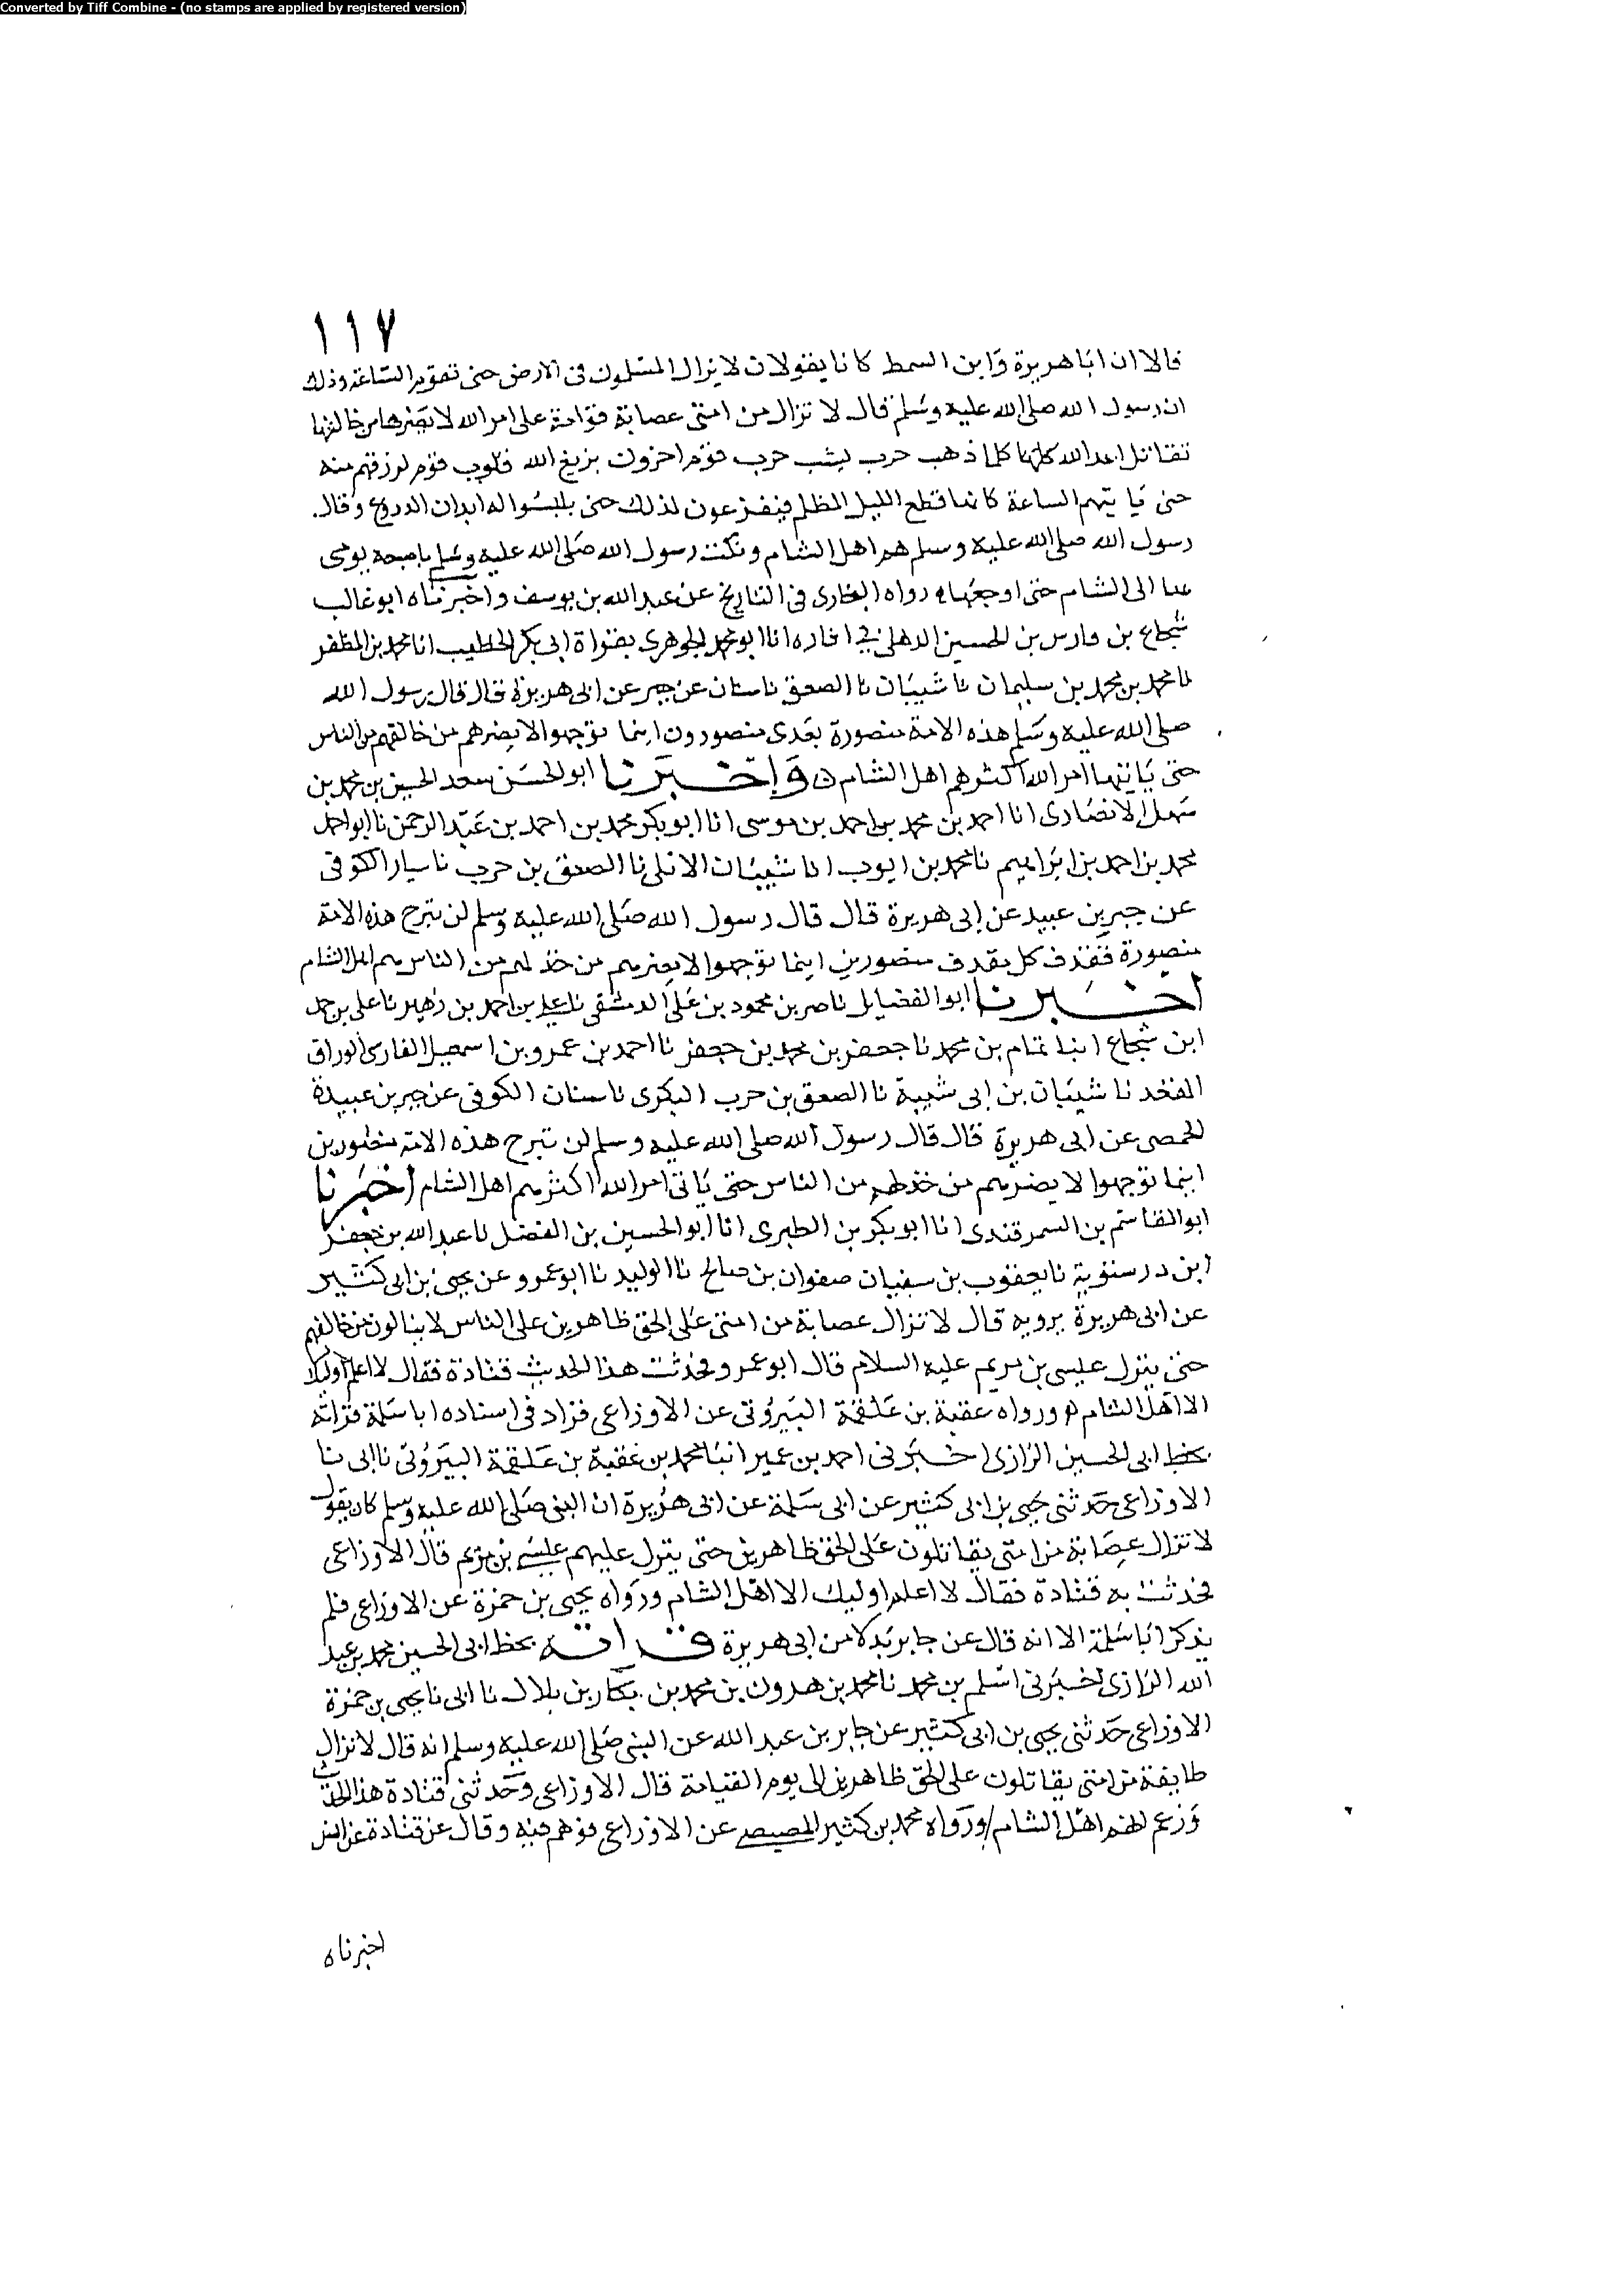 Converted by Tiff Combine - (no stamps are applied by registered version)
١١٧
قالا ان ابا هريرة وابن السمط كانا يقولان لا يزال المسلمون في الارض حتى تقوم الساعة وذلك
ان رسول الله صلى الله عليه وسلم قال لا تزال من امتي عصابة قوامة على امر الله لا يضرها من خالفها
تقاتل اعدا الله كلما ذهب حرب نشب حرب قوم اخرون يزيغ الله قلوب قوم لرزقهم منه
حتى تاتيهم الساعة كانها قطع الليل المظلم فيفزعون لذلك حتى يلبسوا له ابدان الدروع وقال
رسول الله صلى الله عليه وسلم هم اهل الشام ونكت رسول الله صلى الله عليه وسلم باصبعه يومي
بها الى الشام حتى اوجعها رواه البخاري في التاريخ عن عبد الله بن يوسف واخبرناه ابو غالب
شجاع بن فارس بن الحسين الذهلي في انا ابو محمد الجوهري بقراة ابي بكر الخطيب انا محمد بن المظفر
نا محمد بن محمد بن سليمان نا شيبان نا الصعق نا سنان عن جبر عن ابي هريرة قال قال رسول الله
صلى الله عليه وسلم هذه الامة منصورة بعدي منصورون اينما توجهوا لا يضرهم من خالفهم من الناس
حتى ياتيها امر الله اكثرهم اهل الشام واخبرنا ابو الحسن سعد الخير بن محمد بن
سهل الانصاري انا احمد بن محمد بن احمد بن موسى انا ابو بكر محمد بن احمد بن عبد الرحمن نا ابو احمد
محمد بن احمد بن ابراهيم نا محمد بن ايوب انا شيبان الابلي نا الصعق بن حرب نا سيار الكوفي
عن جبر بن عبيد عن ابي هريرة قال قال رسول الله صلى الله عليه وسلم لن تبرح هذه الامة
منصورة تقذف كل مقذف منصورين اينما توجهوا لا يضرهم من خذلهم من الناس هم اهل الشام
اخبرنا ابو الفضايل ناصر بن محمود بن علي الدمشقي نا علي بن احمد بن زهير نا علي بن محمد
ابن شجاع انبا تمام بن محمد نا جعفر بن محمد بن جعفر نا احمد بن عمرو بن اسمعيل الفارسي الوراق
المقعد نا شيبان بن ابي شيبة نا الصعق بن حرب البكري نا سنان الكوفي عن جبر بن عبيدة
الحمصي عن ابي هريرة قال قال رسول الله صلى الله عليه وسلم لن تبرح هذه الامة منصورين
اينما توجهوا لا يضرهم من خذلهم من الناس حتى ياتي امر الله اكثرهم اهل الشام اخبرنا
ابو القاسم بن السمرقندي انا ابو بكر بن الطبري انا ابو الحسين بن الفضل نا عبد الله بن جعفر
ابن درستوية نا يعقوب بن سفيان صفوان بن صالح نا الوليد نا ابو عمرو عن يحيى بن ابي كثير
عن ابي هريرة يرويه قال لا تزال عصابة من امتي على الحق ظاهرين على الناس لا يبالون من خالفهم
حتى ينزل عيسى بن مريم عليه السلام قال ابو عمرو فحدثت هذا الحديث قتادة فقال لا اعلم اوليك
الا اهل الشام ورواه عقبة بن علقمة البيروتي عن الاوزاعي فزاد في اسناده ابا سلمة قراته
بخط ابي الحسين الرازي اخبرني احمد بن عمير انبا محمد بن عقبة بن علقمة البيروتي نا ابي نا
الاوزاعي حدثني يحيى بن ابي كثير عن ابي سلمة عن ابي هريرة ان النبي صلى الله عليه وسلم كان يقول
لا تزال عصابة من امتي يقاتلون على الحق ظاهرين حتى ينزل عليهم عيسى بن مريم قال الاوزاعي
فحدثت به قتادة فقال لا اعلم اوليك الا اهل الشام ورواه يحيى بن حمزة عن الاوزاعي فلم
يذكر ابا سلمة الا انه قال عن جابر بدلا من ابي هريرة قراته بخط ابي الحسين محمد بن عبد
الله الرازي اخبرني اسلم بن محمد نا محمد بن هرون بن محمد بن بكار بن بلال نا ابي نا يحيى بن حمزة
الاوزاعي حدثني يحيى بن ابي كثير عن جابر بن عبد الله عن النبي صلى الله عليه وسلم انه قال لا تزال
طايفة من امتي يقاتلون على الحق ظاهرين الى يوم القيامة قال الاوزاعي وحدثني قتادة هذا الحديث
وزعم انهم اهل الشام ورواه محمد بن كثير المصيصي عن الاوزاعي فوهم فيه وقال عن قتادة عن انس
اخبرناه